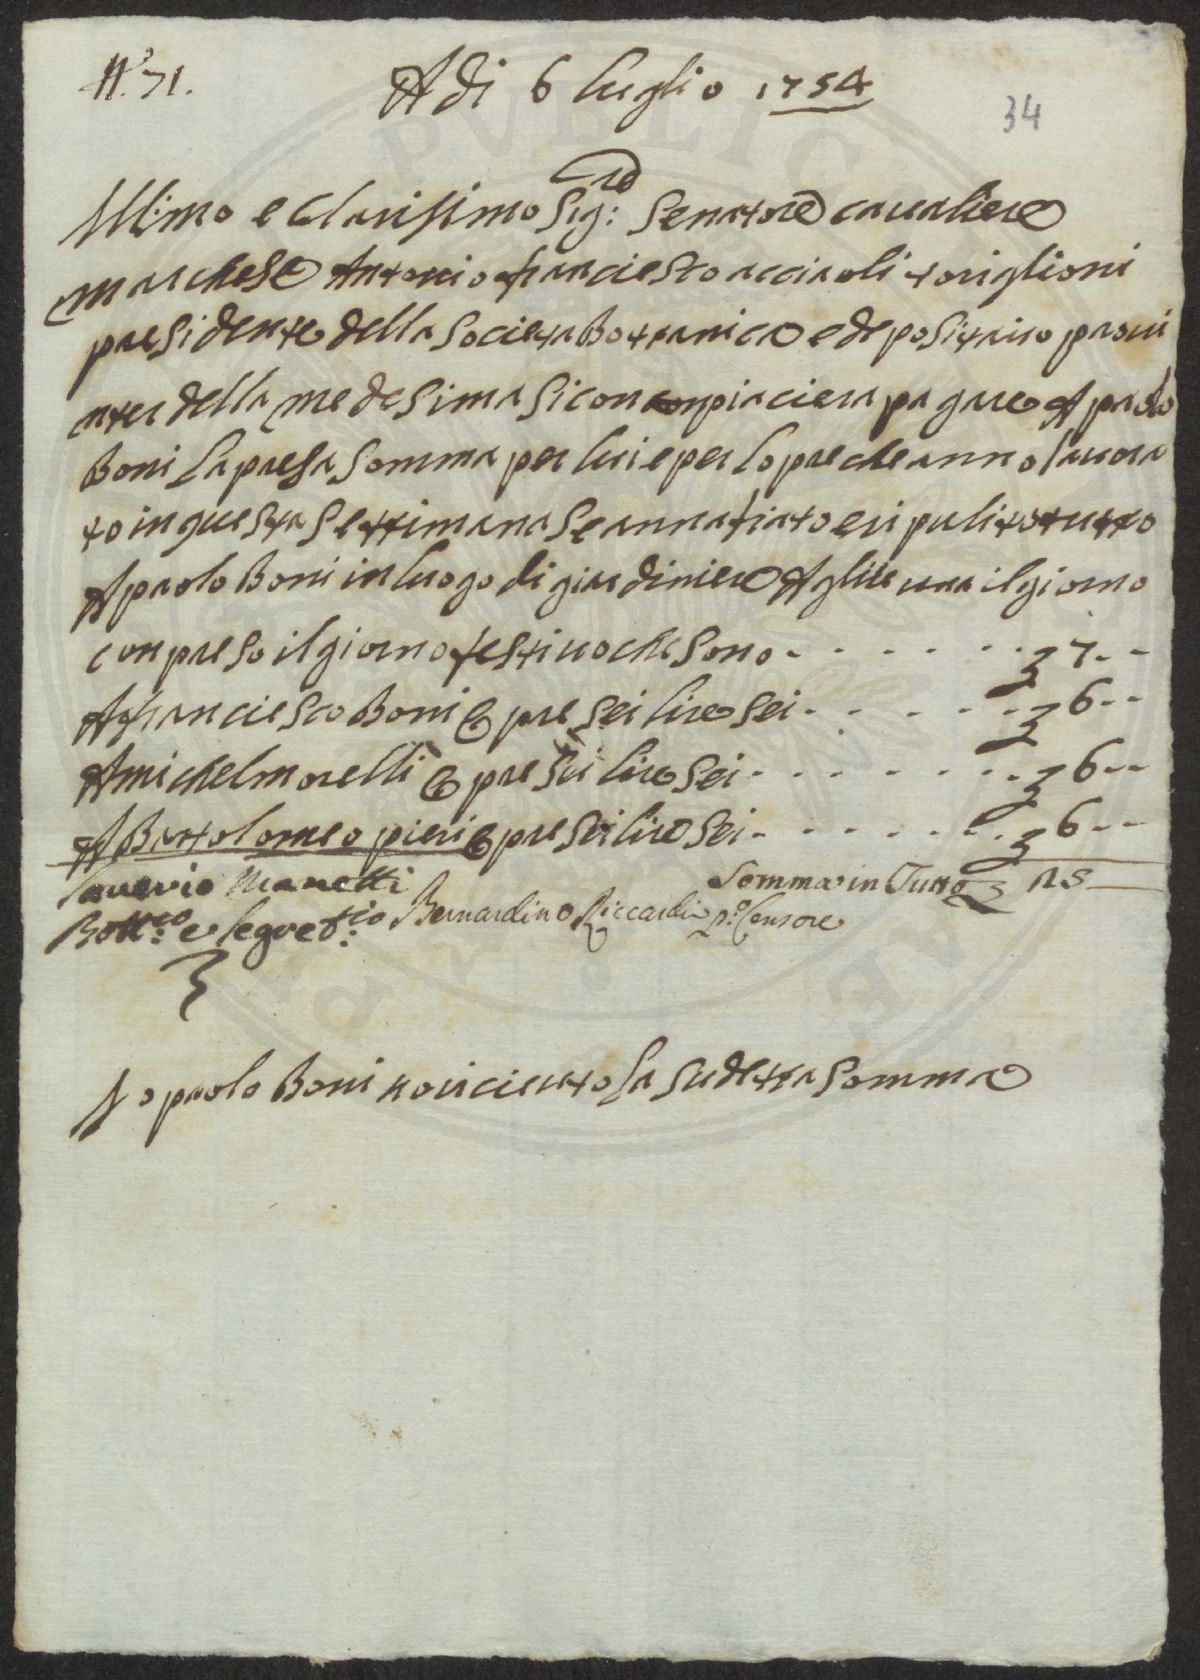 N.° 71.
A di 6 luglio 1754
34
Ill:mo e Clarissimo Sig:re Senatore caualiere
marchese Antonio franciesco acciaoli toriglioni
presidente della societa Botranica e depositairo proui
ater della medesima si con conpiaciera pagare A paolo
Boni la presa somma per lui e per lopre che anno lauora
to in questa settimana se annafiato e ri pulito tutto
A paolo Boni in luogo di giardiniere A glire una il giorno
conpreso il giorno festiuo che sono - - - - - - - 7 - -
A franciesco Boni pre sei lire sei - - - - - - 6 - -
A michel morelli pre sei lire sei - - - - - - - 6 - -
A Bartolomeo pieri pre sei lire sei - - - - - - 6 - -
Somma in Tutto 25
Sauerio Manetti
Bott:co e Segret:rio
Bernardino Riccardi p:o Censore
Io paolo Boni o ricieuto la sudetta somma